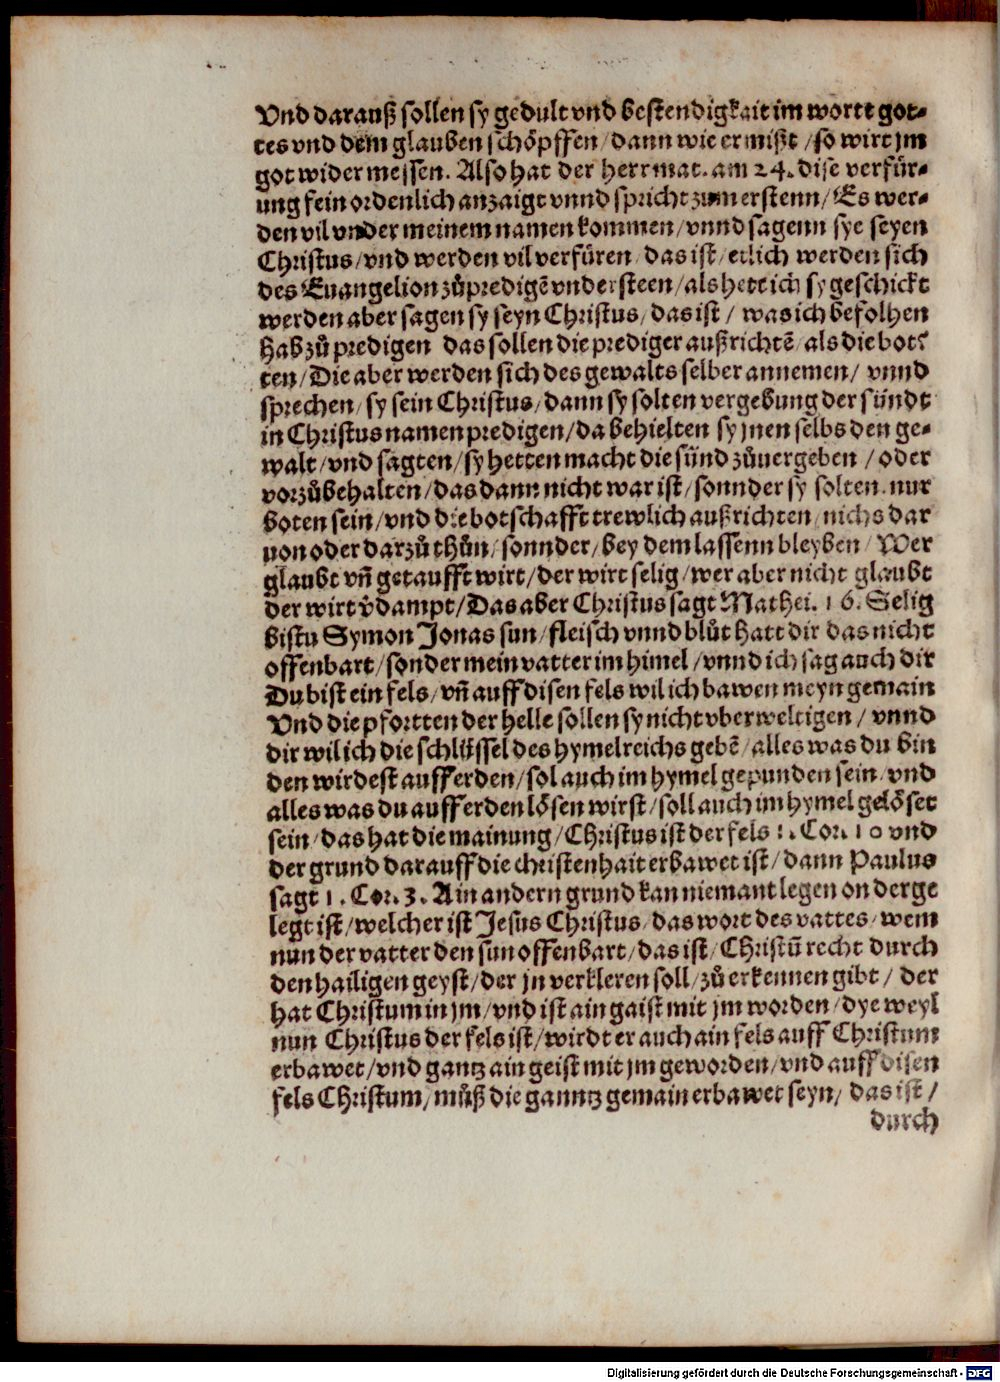 Vnd darauß sollen sy gedult vnd bestendigkait im wortt got-
tes vnd dem glauben schöpffen / dann wie er mißt / so wirt jm
got wider messen. Also hat der herr mat. am 24. dise verfür-
ung fein ordenlich anzaigt vnnd spricht zum erstenn / Es wer-
den vil vnder meinem namen kommen / vnnd sagenn sye seyen
Christus / vnd werden vil verfüren / das ist / etlich werden sich
des Euangelion zů predigē vndersteen / als hett ich sy geschickt
werden aber sagen sy seyn Christus / das ist / was ich befolhen
hab zů predigen das sollen die prediger außrichtē / als die bot-
ten / Die aber werden sich des gewalts selber annemen / vnnd
sprechen / sy sein Christus / dann sy solten vergebung der sündt
in Christus namen predigen / da behielten sy jnen selbs den ge-
walt / vnd sagten / sy hetten macht die sünd zůuergeben / oder
vorzůbehalten / das dann nicht war ist / sonnder sy solten nur
boten sein / vnd die botschafft trewlich außrichten / nichs dar
uon oder darzů thůn / sonnder / bey dem lassenn bleyben / Wer
glaubt vñ getaufft wirt / der wirt selig / wer aber nicht glaubt
der wirt v̄dampt / Das aber Christus sagt Mathei. 16. Selig
bistu Symon Jonas sun / fleisch vnnd blůt hatt dir das nicht
offenbart / sonder mein vatter im himel / vnnd ich sag auch dir
Du bist ein fels / vñ auff disen fels wil ich bawen meyn gemain
Vnd die pfortten der helle sollen sy nicht vberweltigen / vnnd
dir wil ich die schlüssel des hymelreichs gebē / alles was du bin
den wirdest auff erden / sol auch im hymel gepunden sein / vnd
alles was du auff erden lösen wirst / soll auch im hymel gelöset
sein / das hat die mainung / Christus ist der fels 1. Cor. 10 vnd
der grund darauff die christenhait erbawet ist / dann Paulus
sagt 1. Cor. 3. Ain andern grund kan niemant legen on der ge
legt ist / welcher ist Jesus Christus / das wort des vattes / wem
nun der vatter den sun offenbart / das ist / Christū recht durch
den hailigen geyst / der jn verkleren soll / zů erkennen gibt / der
hat Christum in jm / vnd ist ain gaist mit jm worden / dye weyl
nun Christus der fels ist / wirdt er auch ain fels auff Christum
erbawet / vnd gantz ain geist mit jm geworden / vnd auff disen
fels Christum / můß die ganntz gemain erbawet seyn / das ist /
durch
Digitalisierung gefördert durch die Deutsche Forschungsgemeinschaft - DFG